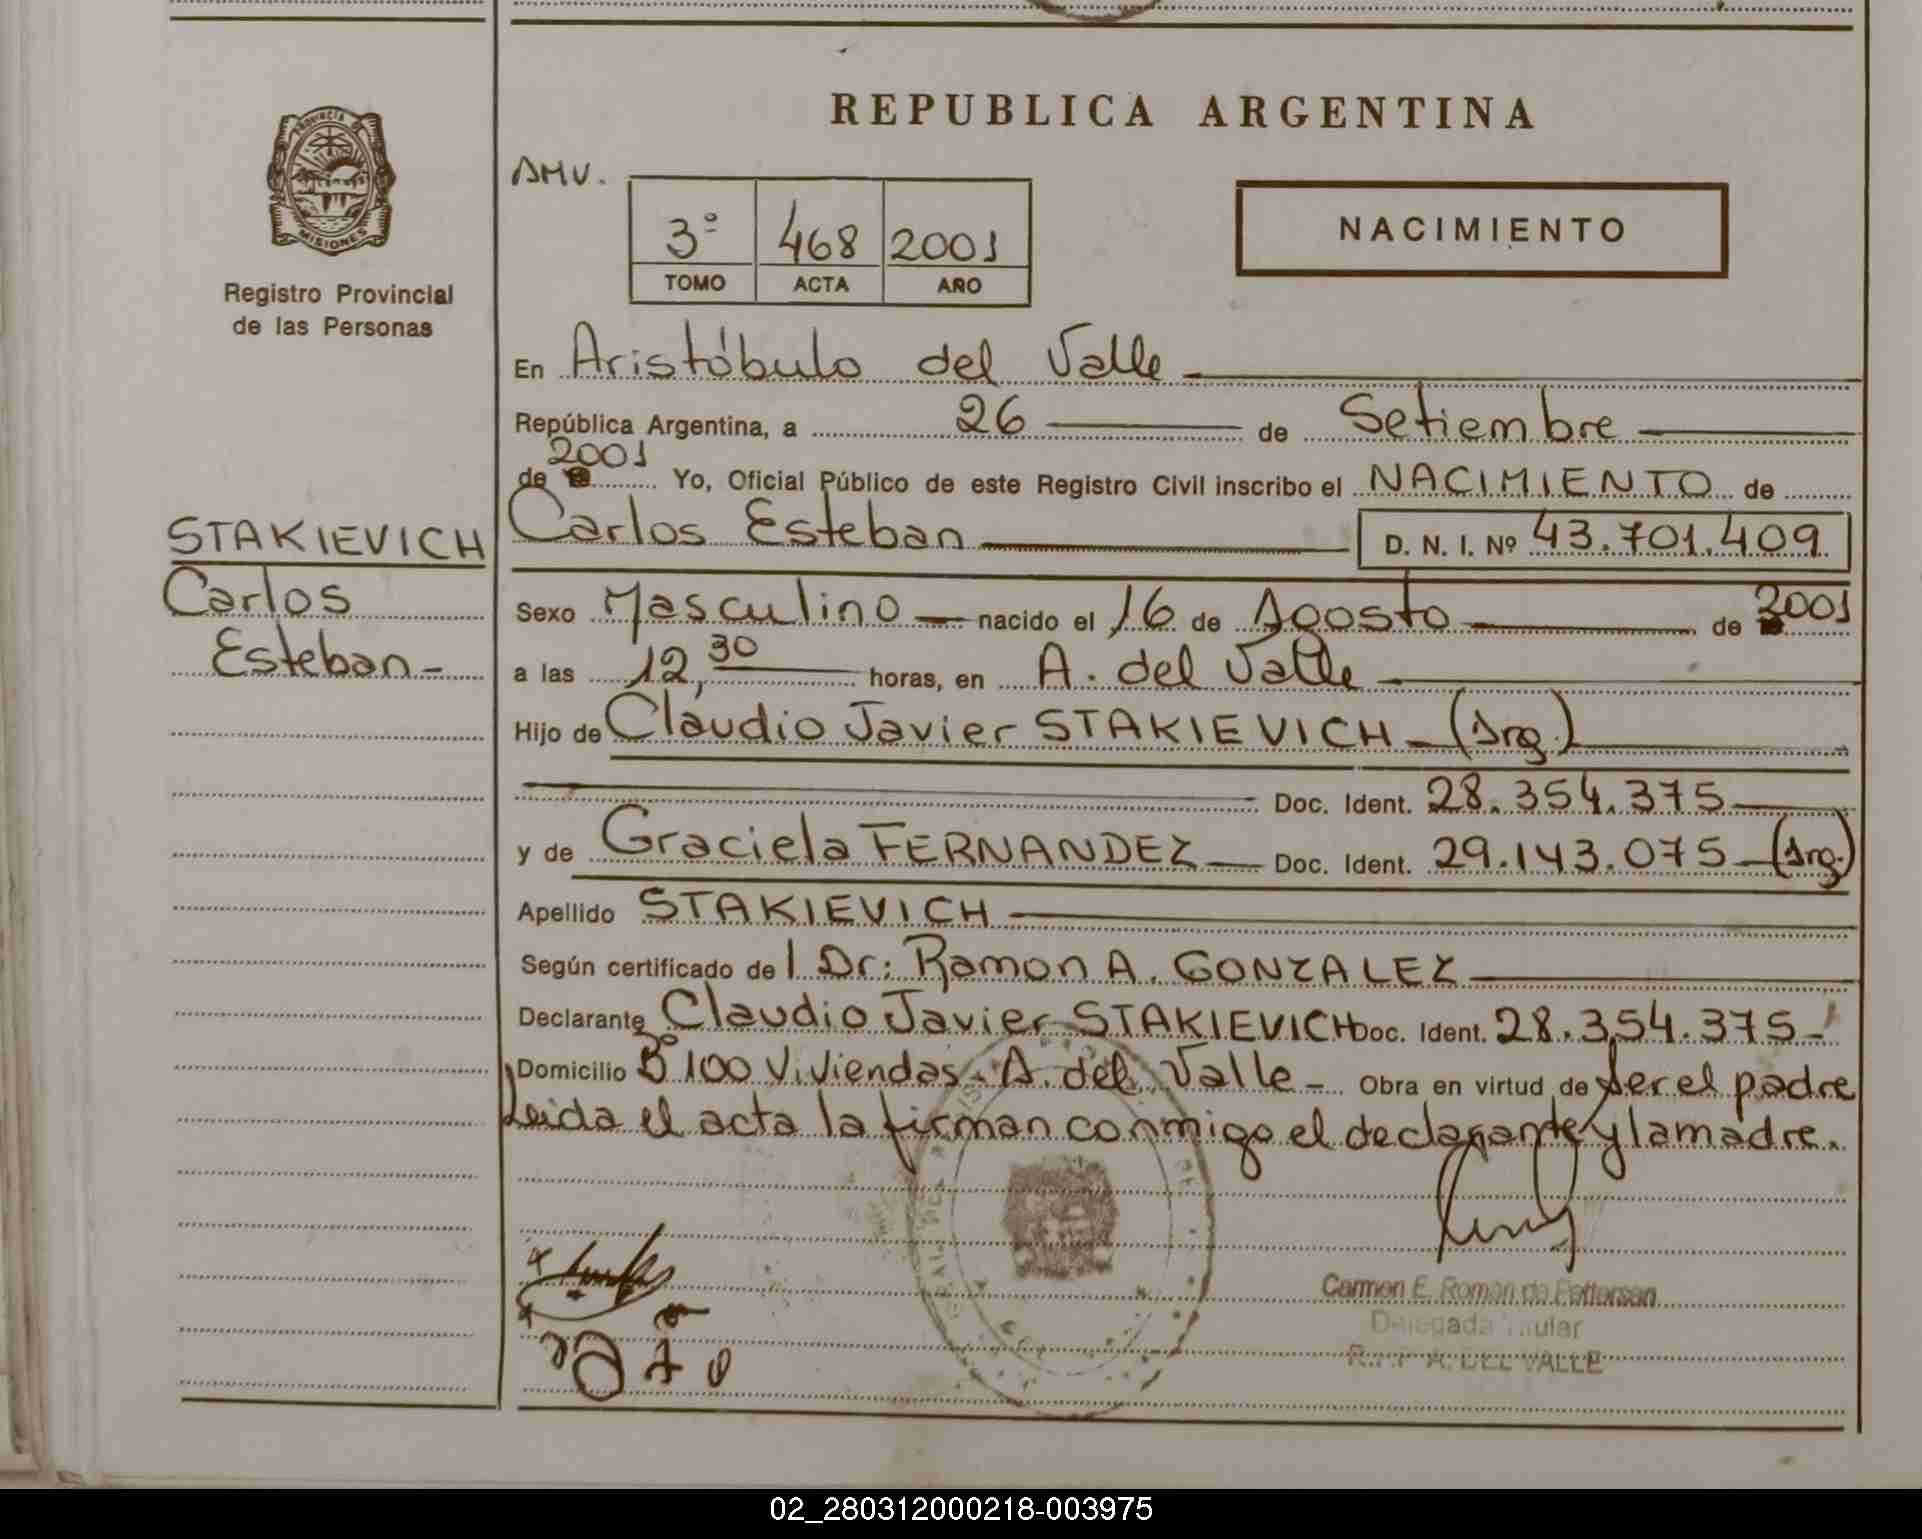 REPUBLICA ARGENTINA
PROVINCIA DE
MISIONES
Registro Provincial
de las Personas
AMV.
3º 468 2001
TOMO ACTA AÑO
NACIMIENTO
En Aristóbulo del Valle
República Argentina, a 26 de Setiembre
de 2001 Yo, Oficial Público de este Registro Civil inscribo el NACIMIENTO de
STAKIEVICH
Carlos
Esteban
Carlos Esteban D. N. I. Nº 43.701.409
Sexo Masculino nacido el 16 de Agosto de 2001
a las 12,30 horas, en A. del Valle
Hijo de Claudio Javier STAKIEVICH (Arg.)
Doc. Ident. 28.354.375
y de Graciela FERNANDEZ Doc. Ident. 29.143.075 (Arg.)
Apellido STAKIEVICH
Según certificado del Dr: Ramon A. GONZALEZ
Declarante Claudio Javier STAKIEVICH Doc. Ident. 28.354.375
Domicilio Bº 100 Viviendas. A. del Valle Obra en virtud de ser el padre
Leida el acta la firman conmigo el declarante y la madre.
Carmen E. Román de
Delegada Titular
A. DEL VALLE
02_280312000218-003975